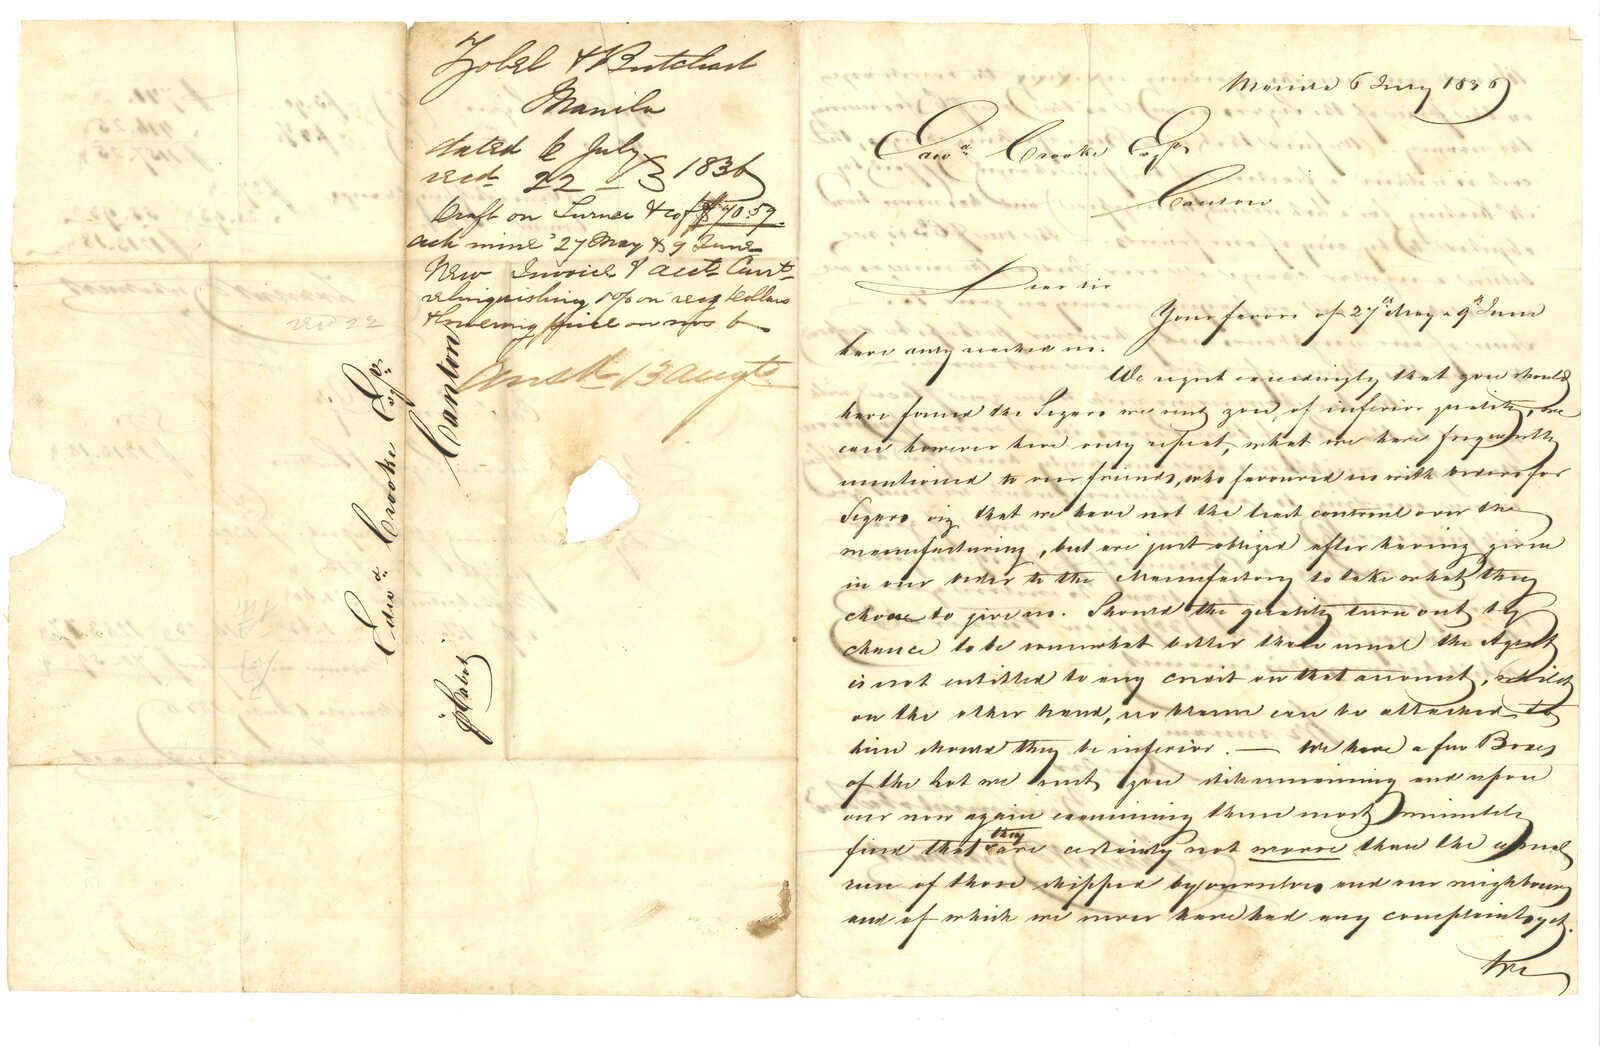 Zobel & Butchart
Manila
dated 6 July
recd 22 - " 1836
Draft on Turner & Co $70.59
ack mine 27 May & 9 June
New Invoice & acct Currt
relinquishing 10p on Dollars
& lowering price on nos 6
Ansd 13 Augt
recd 22
Edwd Crooke Esqr
Canton
p Cabot
Manila 6 July 1836
Edwd Crooke Esqr
Canton
Dear sir
Your favors of 27th May & 9th June
have only reached us.
We regret exceedingly that you should
have found the Segars we sent you, of inferior quality, we
can however here only repeat, what we have frequently
mentioned to our friends, who favoured us with orders for
Segars viz that we have not the least controul over the
manufacturing, but are just obliged after having given
in our order to the Manufactory to take what they
choose to give us. Should the quality turn out by
chance to be somewhat better than usual the Agent
is not entitled to any credit on that account, whilst
on the other hand, no blame can be attached to
him should they be inferior. — We have a few Boxes
of the Lot we sent you still remaining and upon
our now again examining them most minutely
find that they are certainly not worse than the usual
run of those shipped by ourselves and our neighbours
and of which we never have had any complaints yet.
We